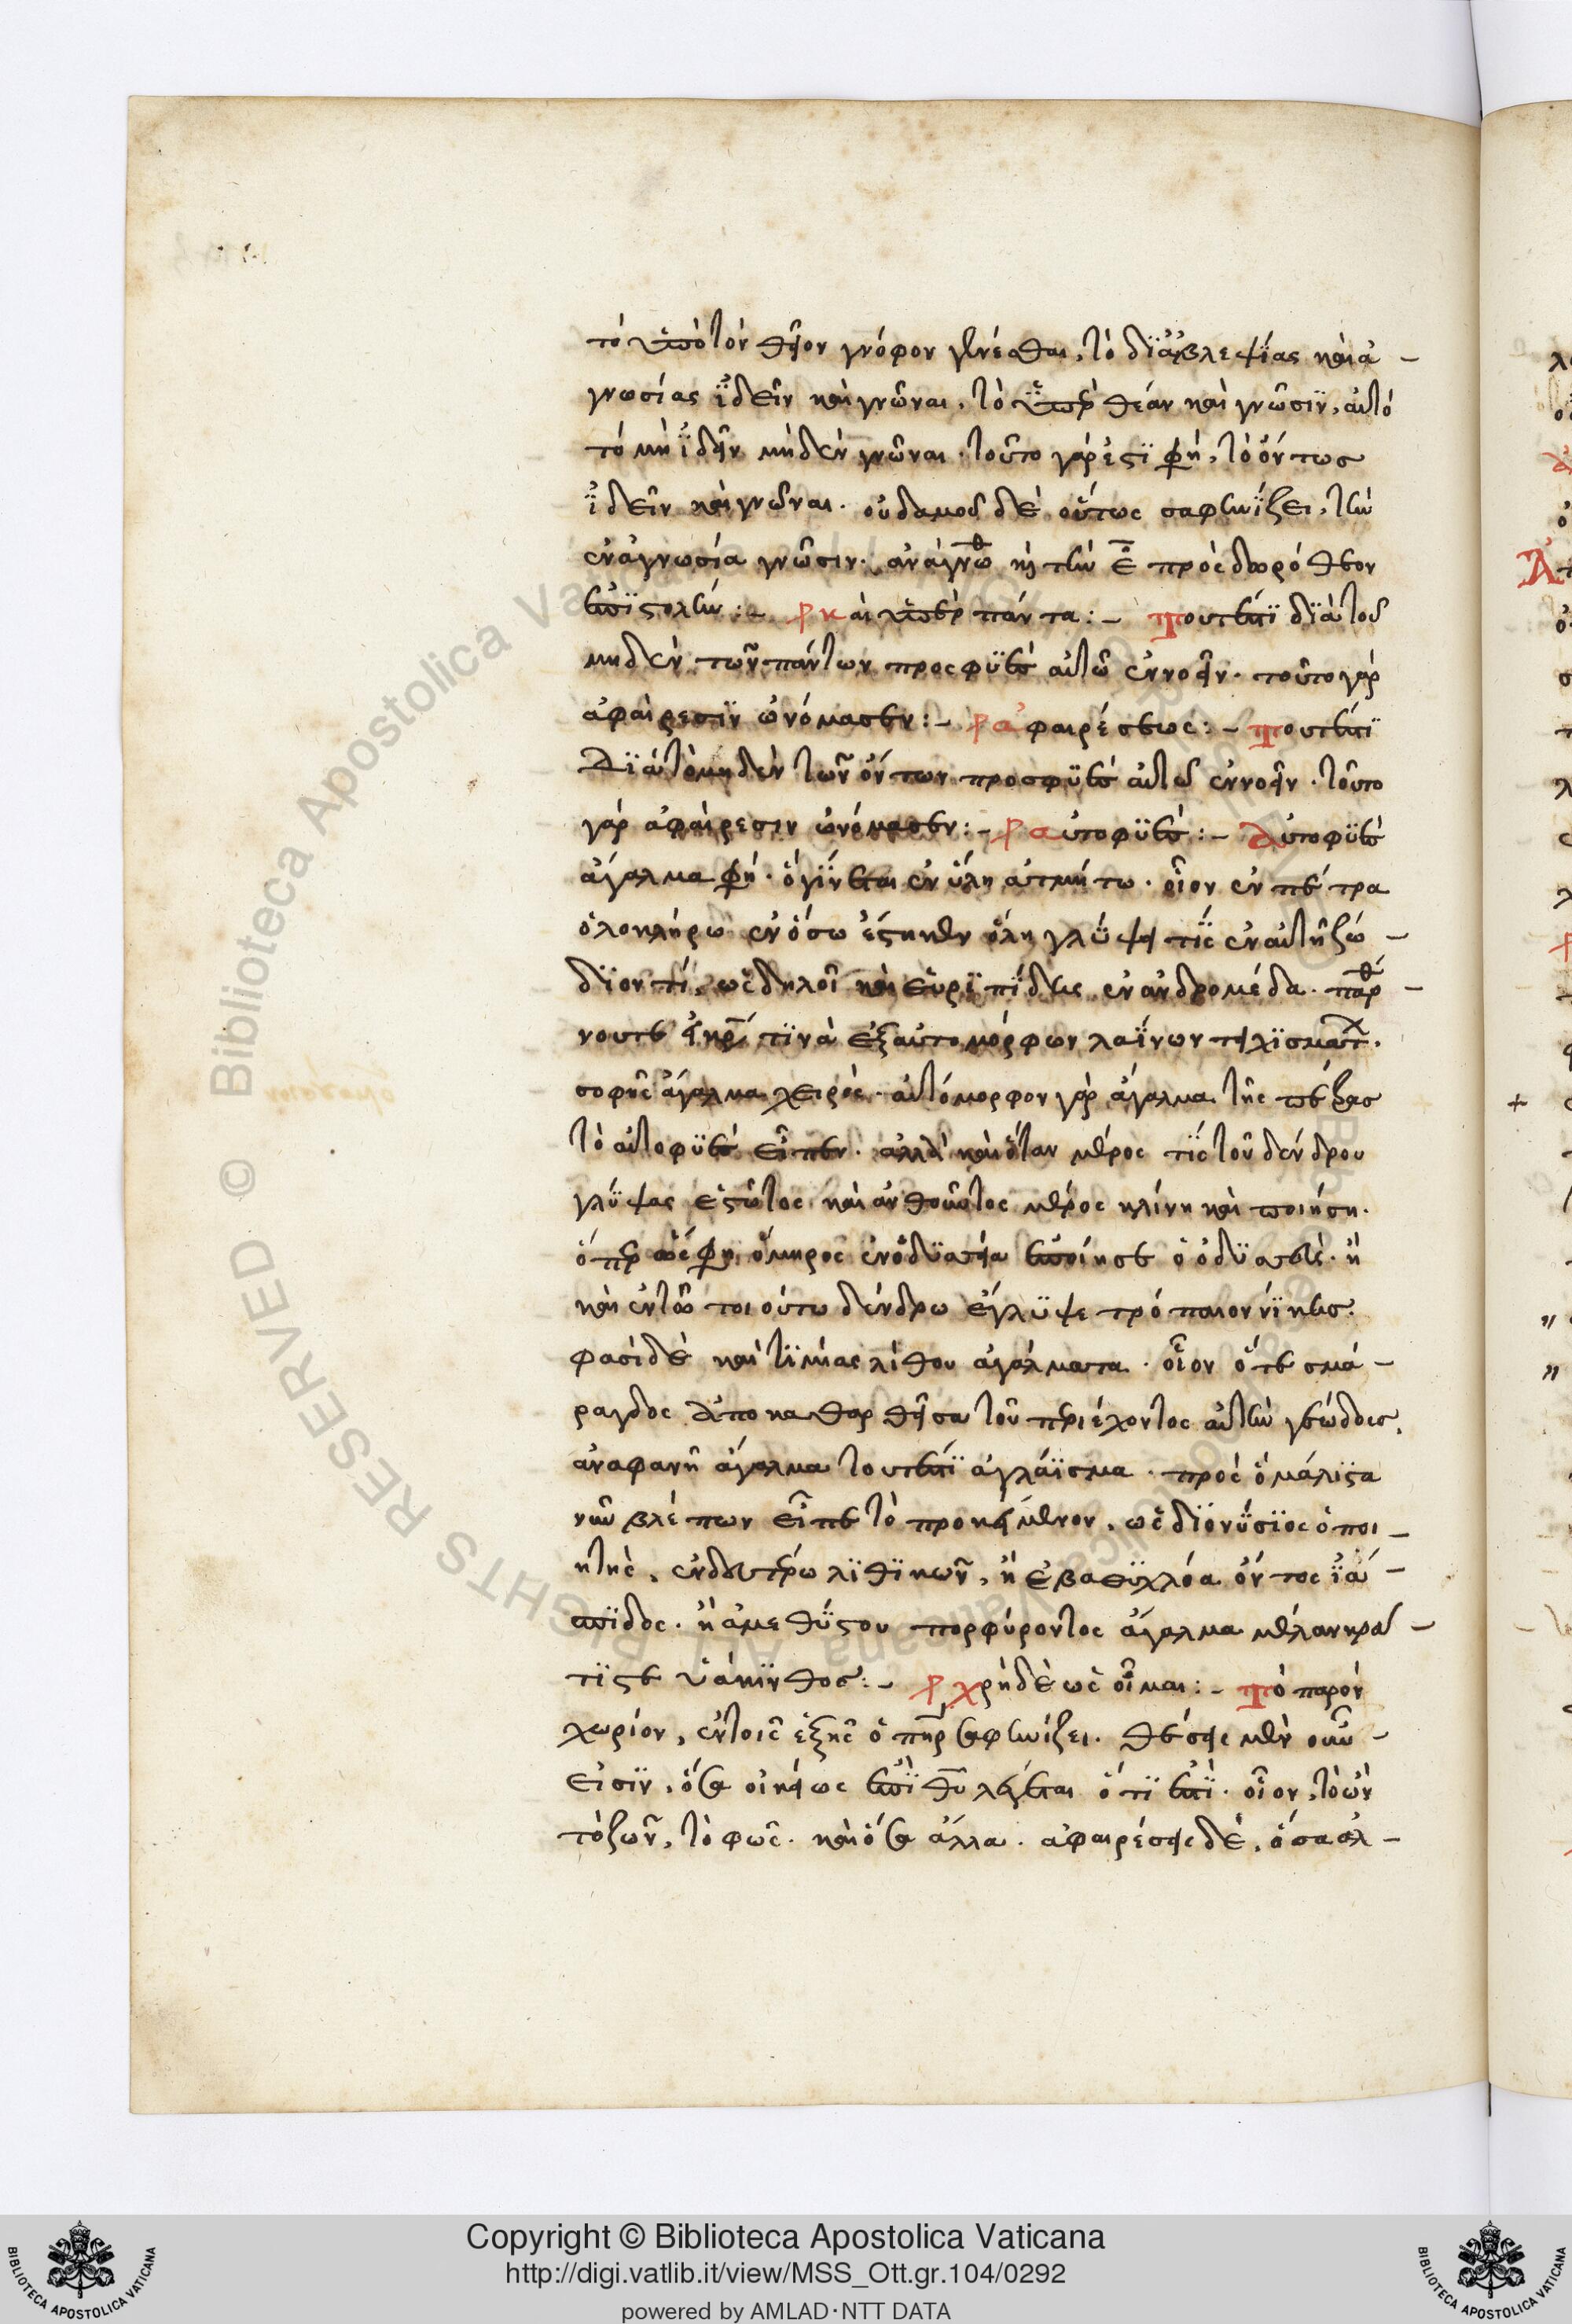 τὸ ὑπὸ τὸν θεῖον γνόφον γενέσθαι, τὸ δι' ἀβλεψίας καὶ ἀ-
γνωσίας ἰδεῖν καὶ γνῶναι, τὸ ὑπὲρ θέαν καὶ γνῶσιν, αὐτὸ
τὸ μὴ ἰδεῖν μηδὲν γνῶναι. τοῦτο γάρ ἐστι φη, τὸ ὄντως
ἰδεῖν καὶ γνῶναι. οὐδαμοῦ δὲ οὕτως σαφηνίζει, τὴν
ἐν ἀγνωσία γνῶσιν. ἀνάγνω καὶ τὴν ε πρὸς δωρόθεον
ἐπιστολήν :- καὶ ὑπὲρ πάντα :- Τουτέστι διὰ τοῦ
μηδὲν τῶν πάντων προσφυὲς αὐτῶ ἐννοεῖν. τοῦτο γὰρ
ἀφαίρεσιν ὠνόμασεν :- ἀφαιρέσεως :- Τουτέστι
Διὰ τὸ μηδὲν τῶν ὄντων προσφυὲς αὐτοῦ ἐννοεῖν. τοῦτο
γὰρ ἀφαίρεσιν ὠνόμασεν :- αὐτοφυὲς :- Αὐτοφυὲς
ἄγαλμα φη. ὃ γίνεται ἐν ὕλη ἀτμήτω. οἷον ἐν πέτρα
ὁλοκλήρω ἐν ὅσω ἕστηκεν ὅλη γλύψει τίς ἐν αὐτῆ ζώ-
διον τί, ὡς δηλοῖ καὶ εὐριπίδης ἐν ἀνδρομέδα. παρθέ-
νου τε εἰκώ τινὰ ἐξ αὐτομόρφων λαΐνων τειχισμάτ.
σοφῆς ἄγαλμα χειρός. αὐτόμορφον γὰρ ἄγαλμα τῆς πέτρας
τὸ αὐτοφυὲς εἶπεν. ἀλλὰ καὶ ὅταν μέρος τίς τοῦ δένδρου
γλύψας ἑστῶτος καὶ ἀνθοῦντος μέρος κλίνη καὶ ποιήση.
ὅπερ ὡς φη ὅμηρος ἐν ὀδυσσεία ἐποίησε ὁ ὀδυσσεύς. ἢ
καὶ ἐν τῶ τοιούτω δένδρω ἔγλυψε τρόπαιον νίκης.
φασὶ δὲ καὶ τιμίας λίθου ἀγάλματα. οἷον ὅτε σμά-
ραγδος ἀποκαθαρθεῖσα τοῦ περιέχοντος αὐτὴν γεώδους,
ἀναφανῆ ἄγαλμα τουτέστι ἀγλάϊσμα. πρὸς ὃ μάλιστα
νῦν βλέπων εἶπε τὸ προκείμενον, ὡς διονύσιος ὁ ποι-
ητὴς, ἐν δευτέρω λιθικῶν, ἢ ἐ βαθυχλόα ὄντος ἰά-
σπιδος. ἢ ἀμεθύστου πορφύροντος ἄγαλμα μελανκρα-
τίς τε ὑάκινθος :- χρὴ δὲ ὡς οἶμαι :- Τὸ παρὸν
χωρίον, ἐν τοῖς ἑξῆς ὁ πηρ σαφηνίζει. θέσεις μὲν οὖν
εἰσὶν, ὅσα οἰκείως ἐπὶ θυ λέγεται ὅτι ἐστὶ. οἷον, τὸ ὢν
τὸ ζωῆν, τὸ φῶς. καὶ ὅσα ἄλλα. ἀφαιρέσεις δὲ, ὅσα ἀλ-
Copyright © Biblioteca Apostolica Vaticana
http://digi.vatlib.it/view/MSS_Ott.gr.104/0292
powered by AMLAD·NTT DATA